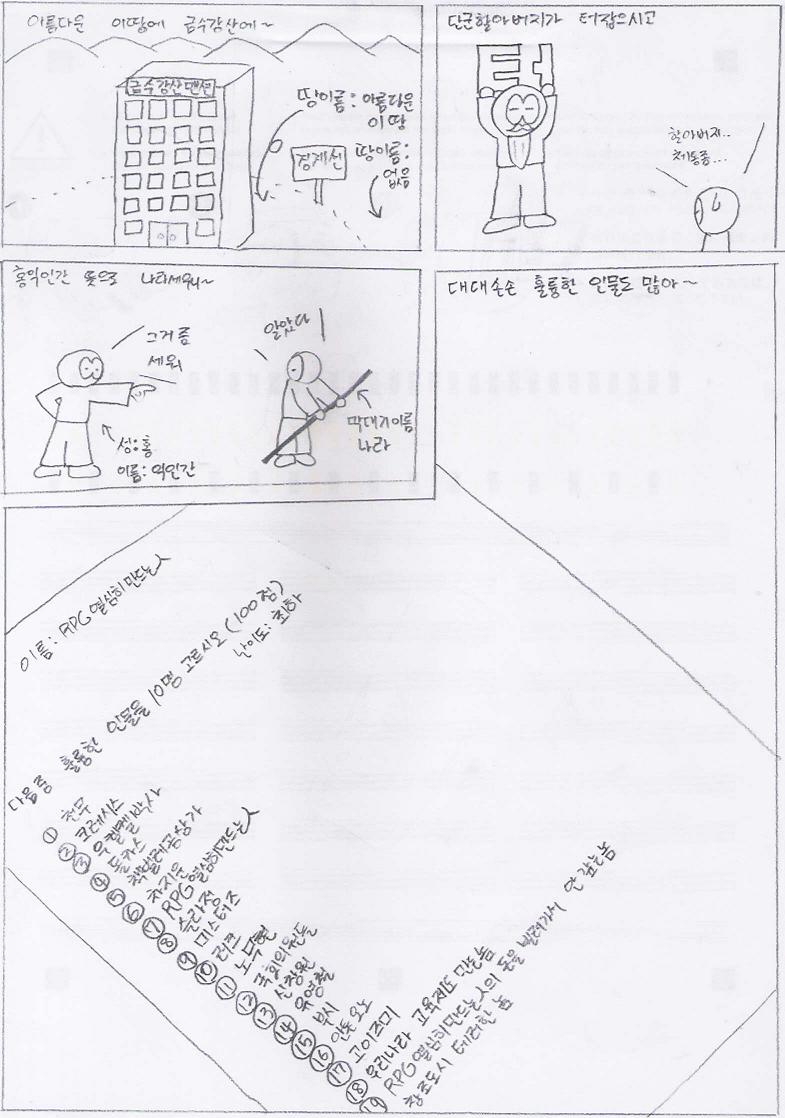 아름다운 이땅에 금수강산에~
금수강산맨션
땅이름: 아름다운
이 땅
경계선
땅이름:
없음
단군할아버지가 터잡으시고
터
할아버지..
체통좀...
홍익인간 뜻으로 나라세우니~
그거좀
세워
성:홍
이름: 익인간
알았다
막대기이름
나라
대대손손 훌륭한 인물도 많아~
이름: RPG열심히만드는人
다음중 훌륭한 인물을 10명 고르시오 (100점)
난이도: 최하
① 천무
② 코레시스
③ 우켈켈박사
④ 돌카스
⑤ 책벌레공상가
⑥ 차지운
⑦ RPG열심히만드는人
⑧ 슬라정
⑨ 미스터즈
⑩ 러크
⑪ 노무현
⑫ 국회의원들
⑬ 신창원
⑭ 유영철
⑮ 부시
⑯ 안톤오노
⑰ 고이즈미
⑱ 우리나라 교육제도 만든놈
⑲ RPG열심히만드는人의 돈을 빌려가서 안 갚는놈
창조도시 테러한 놈